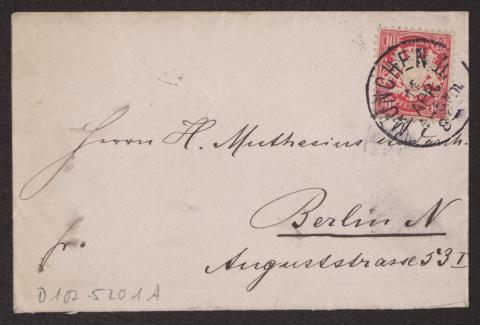 10
MÜNCHEN
APR
Herrn H. Muthesius
Berlin N
Auguststrasse 53 I
fr.
D102-5201A